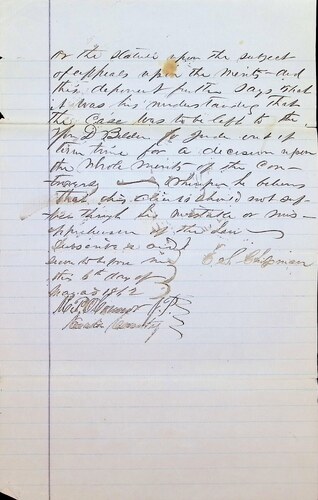 of the statute upon the subject
of appeals upon the merits and
this deponent further says that
it was his understanding that
the Case was to be left to the
Wm D Belden Jr Jude out of
term time for a decision upon
the whole merits of the Con-
troversy Wherefore he believes
that his Client should not suf-
fer though his mistake or mis-
apprehension of the law
Subscribed and
sworn to before me
this 6th day of
May AD 1862
M. P. O'Connor J.P.
County